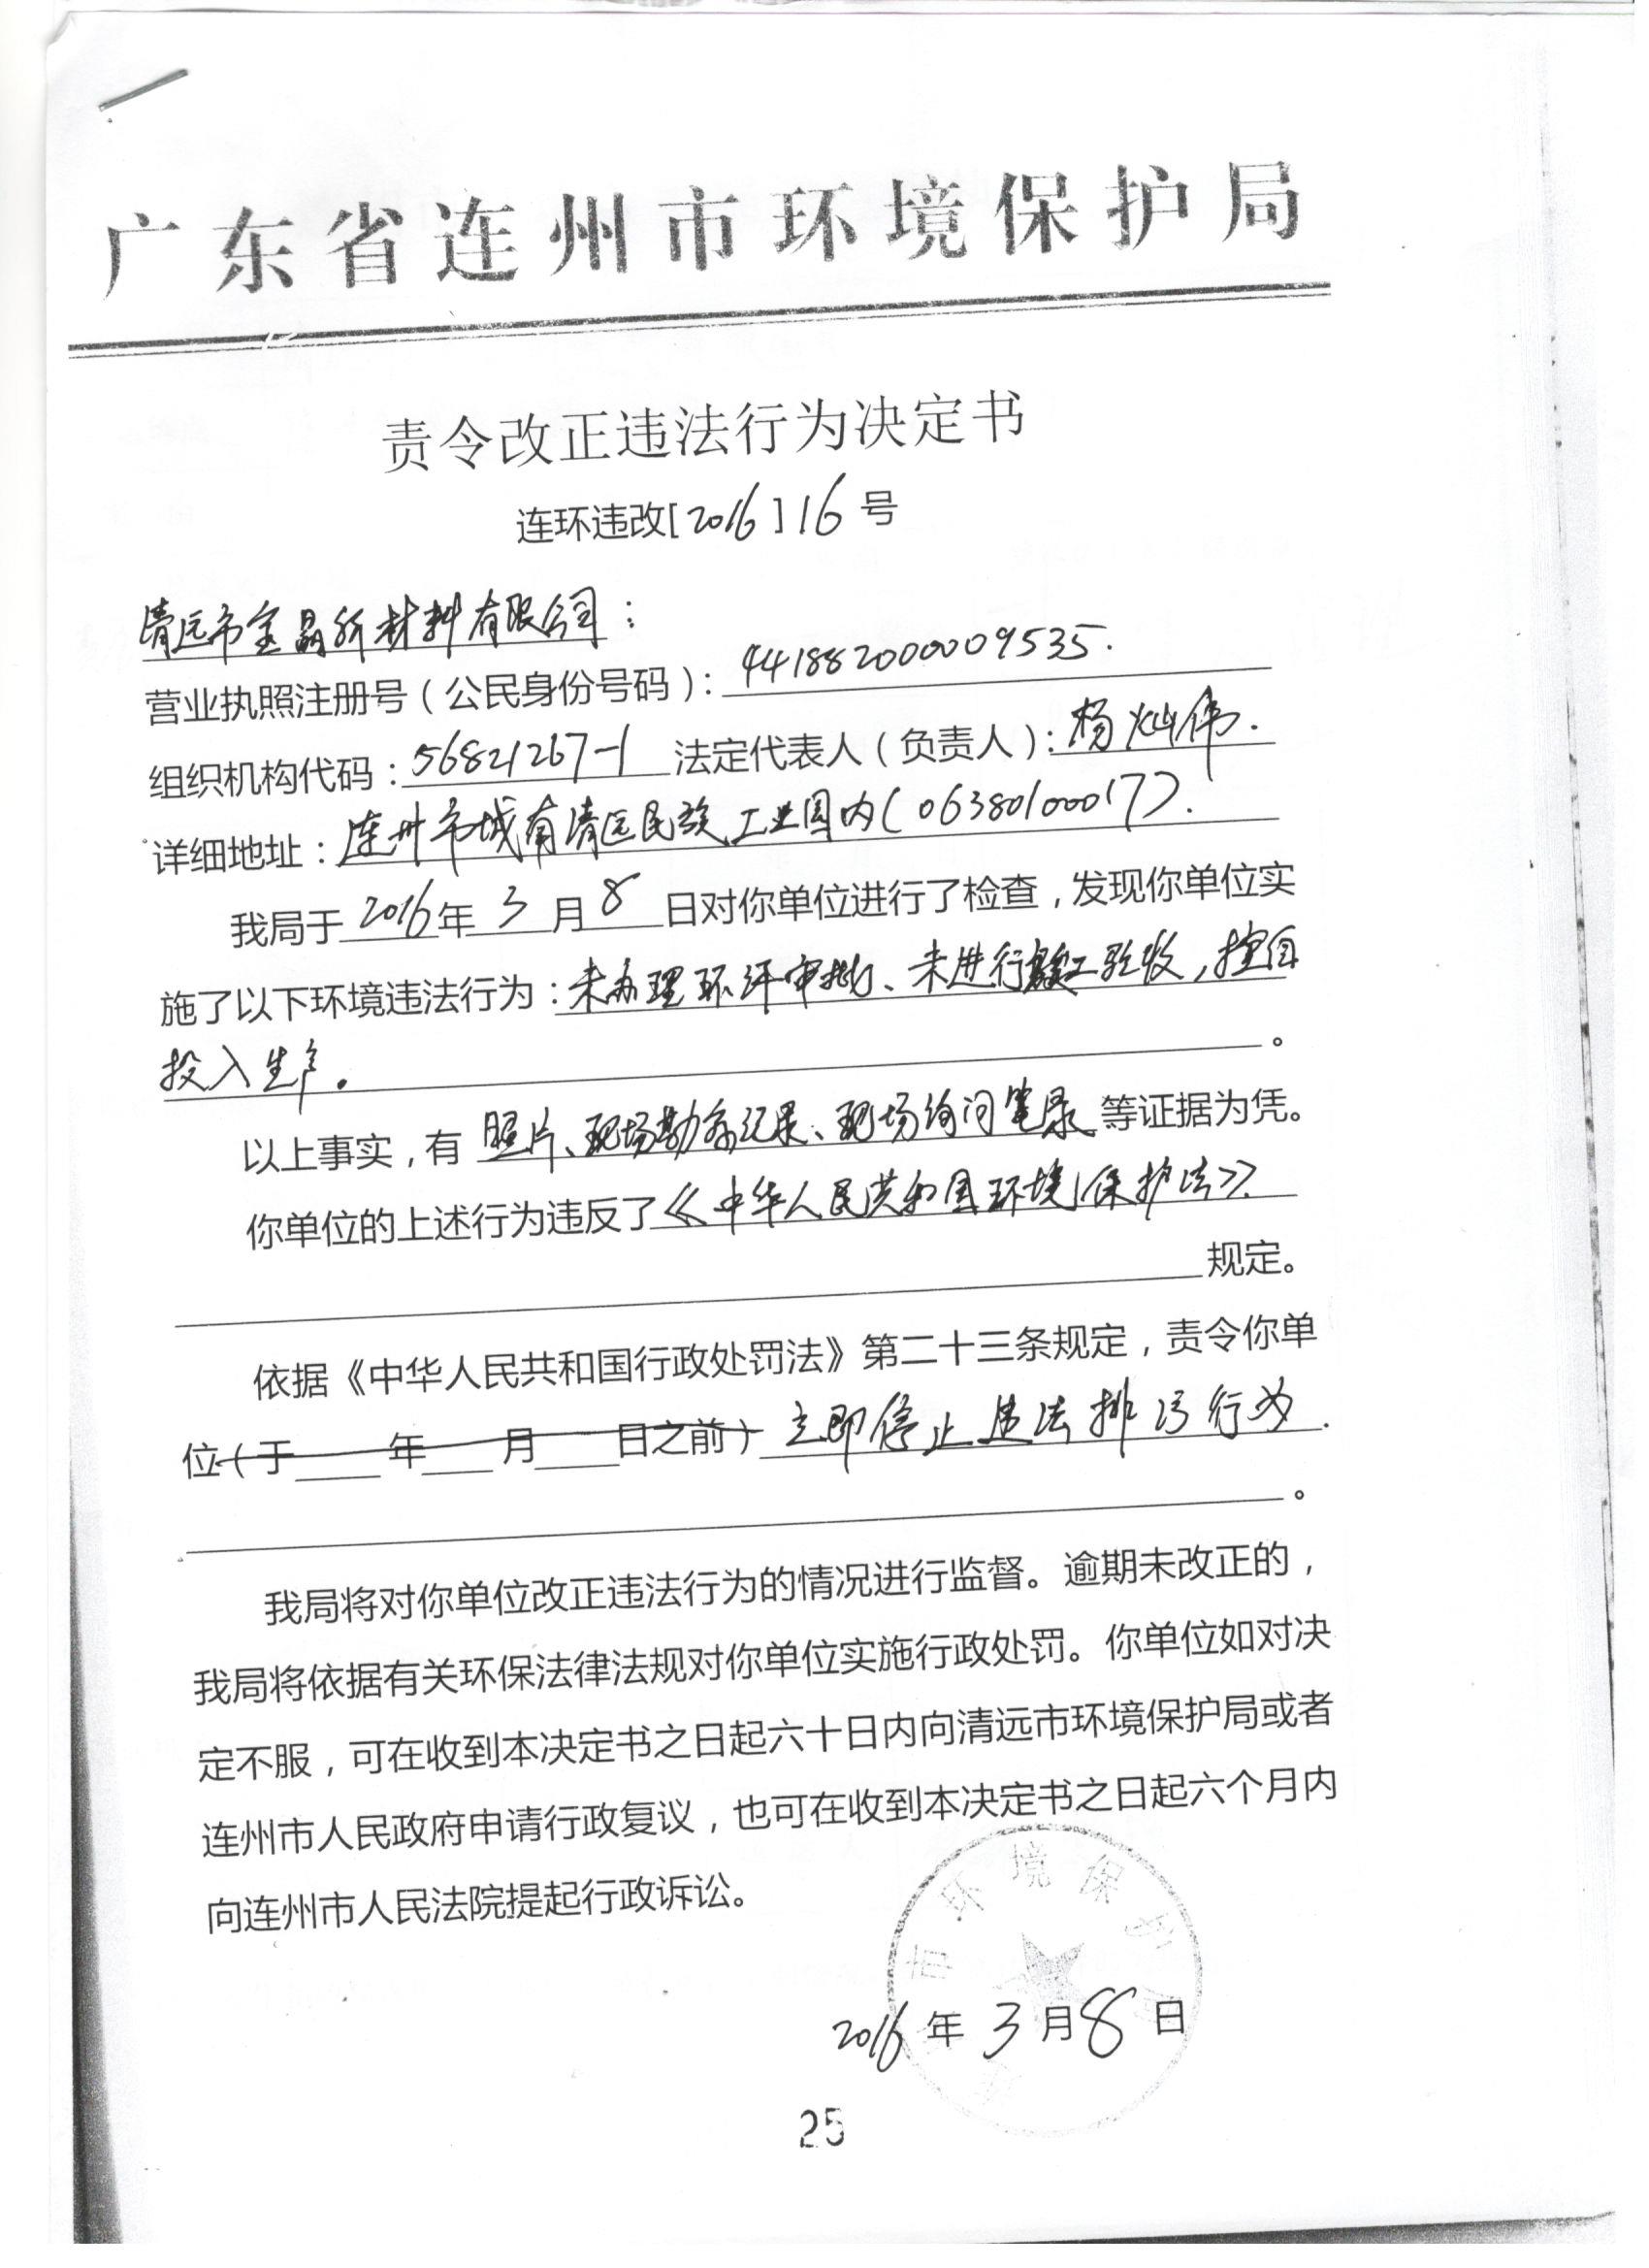 广东省连州市环境保护局
责令改正违法行为决定书
连环违改[2016]16号
清远市金晶新材料有限公司:
营业执照注册号(公民身份号码):441882000009535.
组织机构代码:56821267-1 法定代表人(负责人):杨灿伟.
详细地址:连州市城南清远民族工业园内(06380100017).
我局于2016年3月8日对你单位进行了检查,发现你单位实
施了以下环境违法行为:未办理环评审批、未进行竣工验收,擅自
投入生产。 。
以上事实,有 照片、现场勘察记录、现场询问笔录 等证据为凭。
你单位的上述行为违反了《中华人民共和国环境保护法》
规定。
依据《中华人民共和国行政处罚法》第二十三条规定,责令你单
位(于 年 月 日之前) 立即停止违法排污行为.
。
我局将对你单位改正违法行为的情况进行监督。逾期未改正的,
我局将依据有关环保法律法规对你单位实施行政处罚。你单位如对决
定不服,可在收到本决定书之日起六十日内向清远市环境保护局或者
连州市人民政府申请行政复议,也可在收到本决定书之日起六个月内
向连州市人民法院提起行政诉讼。
市环境保护
2016年3月8日
25